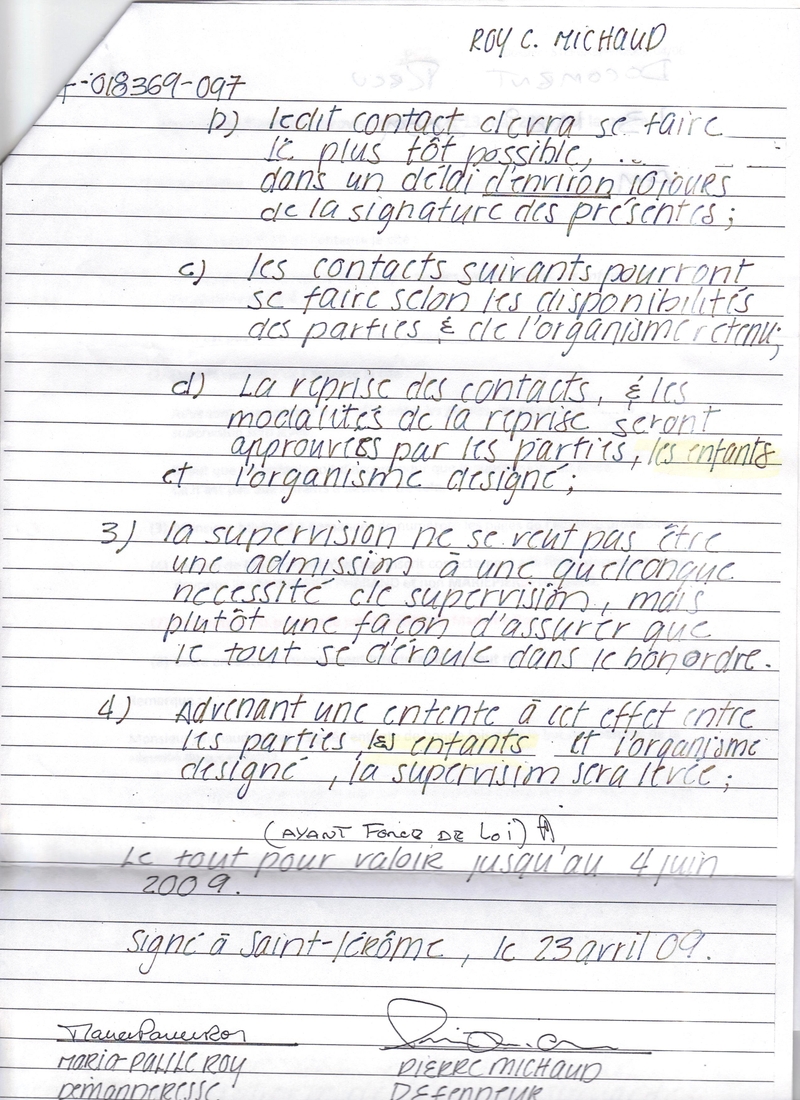 ROY C. MICHAUD
-018369-097
b) ledit contact devra se faire
le plus tôt possible,
dans un délai d'environ 10 jours
de la signature des présentes;
c) les contacts suivants pourront
se faire selon les disponibilités
des parties & de l'organisme retenu;
d) La reprise des contacts, & les
modalités de la reprise seront
approuvées par les parties, les enfants
et l'organisme désigné;
3) la supervision ne se veut pas être
une admission à une quelconque
nécessité de supervision, mais
plutôt une façon d'assurer que
le tout se déroule dans le bon ordre.
4) Advenant une entente à cet effet entre
les parties, les enfants et l'organisme
désigné, la supervision sera levée;
(AYANT FORCE DE LOI)
Le tout pour valoir jusqu'au 4 juin
2009.
Signé à Saint-Jérôme, le 23 avril 09.
MARIE-PAULE ROY PIERRE MICHAUD
DEMANDERESSE DÉFENDEUR